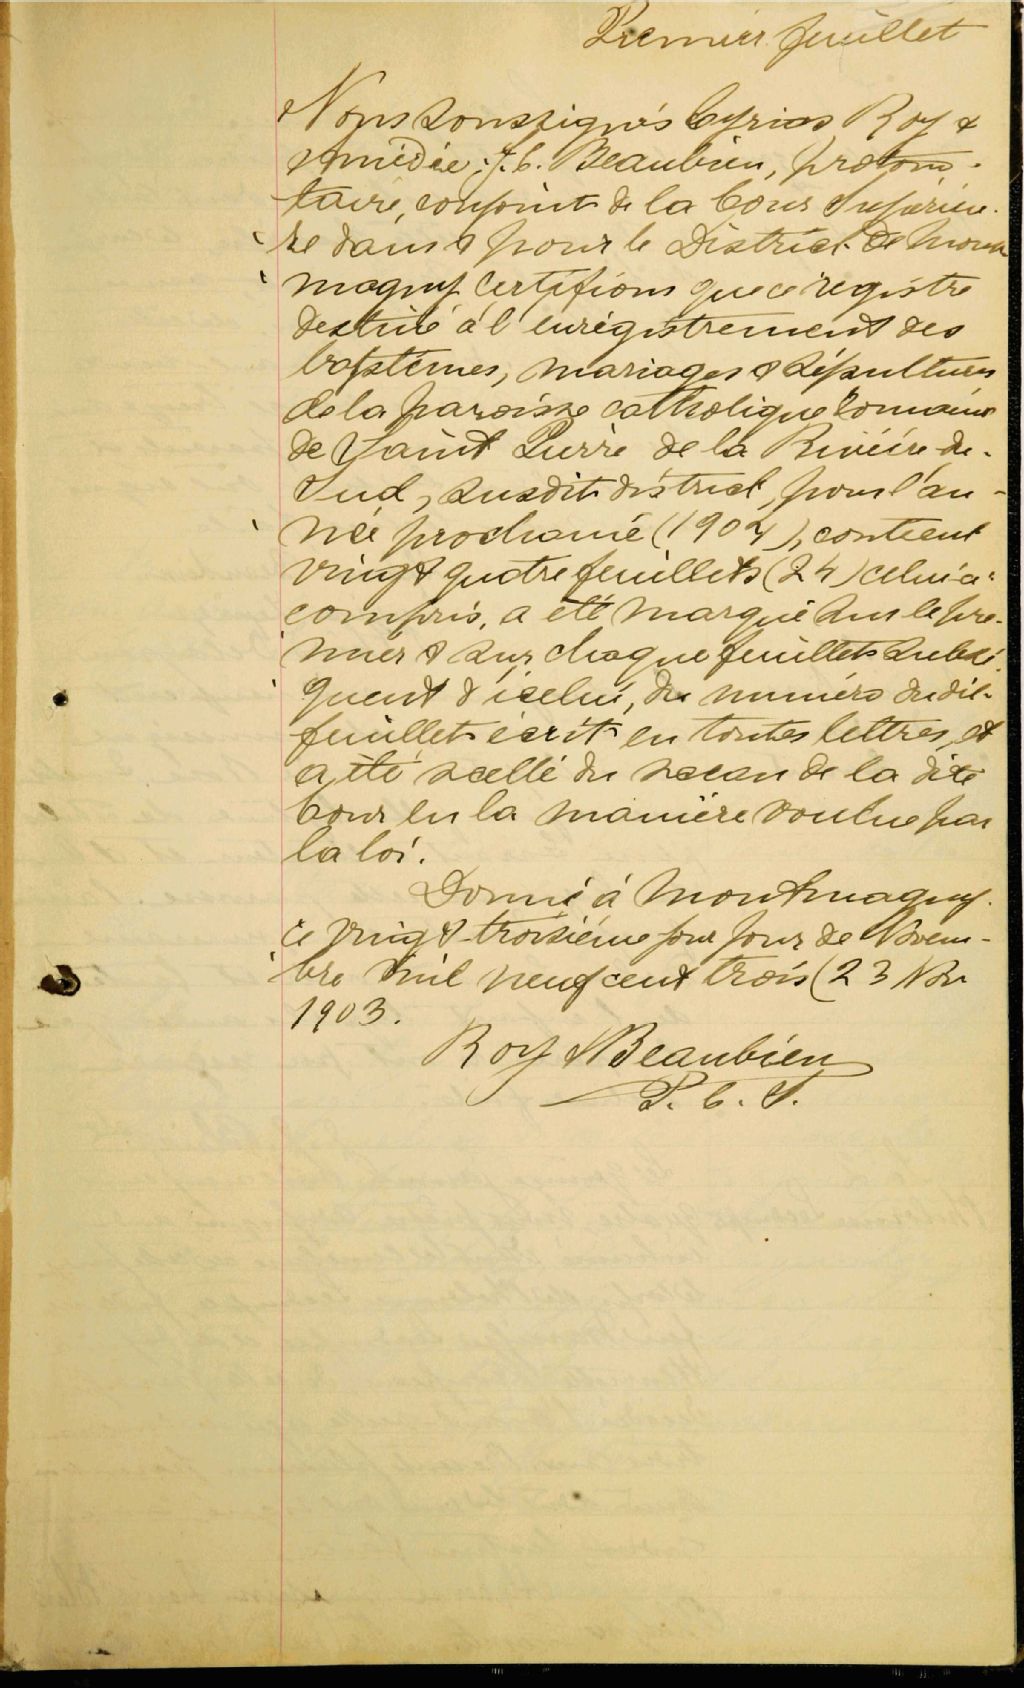 Premier feuillet
Nous soussignés Cyrias Roy &
Amédée J. C. Beaubien, protono-
taire, conjoint de la Cour Supérieu-
re dans & pour le District de Mont
magny certifions que ce registre
destiné à l'enrégistrement des
baptêmes, mariages & sépultures
de la paroisse catholique Romaine
de Saint Pierre de la Rivière du-
Sud, susdit district, pour l'an-
née prochaine (1904), contient
vingt quatre feuillets (24) celui-ci
compris, a été marqué sur le pre-
mier & sur chaque feuillets subsé
quent d'icelui, du numéro dudit
feuillet écrit en toutes lettres, et
a été scellé du sceau de la dite
Cour en la manière voulue par
la loi.
Donné à Montmagny.
ce vingt-troisième jour jour de Novem-
bre mil neuf cent trois (23 Nov
1903.
Roy & Beaubien
P. C. S.